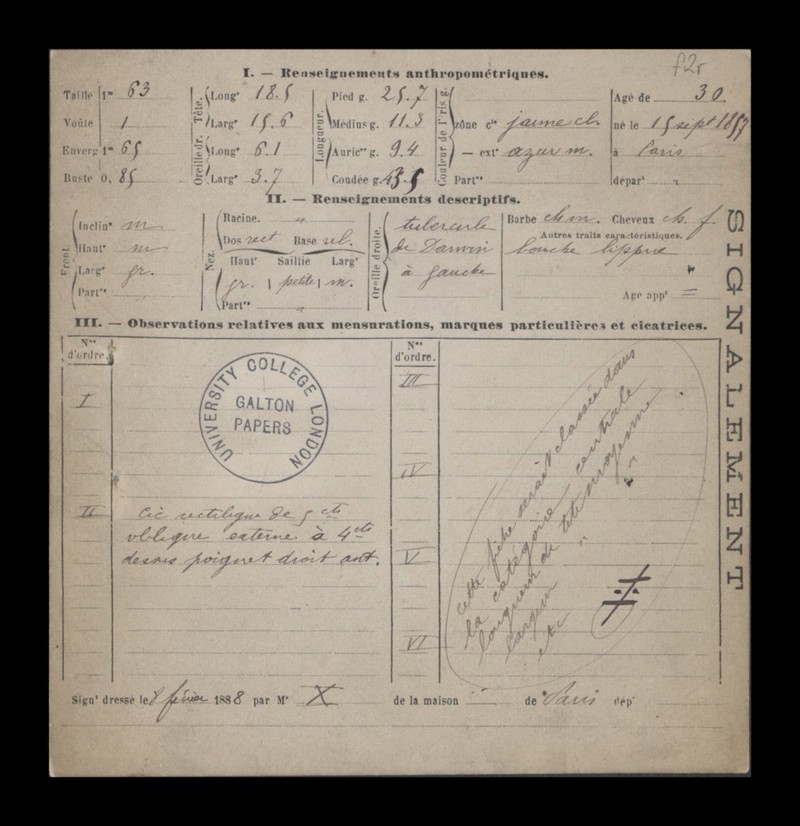 f2r
I. — Renseignements anthropométriques.
Taille 1m 63 Long' 18.5 Pied g. 25.7 Age de 30
Voûte 1 Tête. Larg' 15.6 Médius g. 11.3 zône cle jaune ch. né le 15 sept 1857
Enverg 1m 65 Long' 6.1 Auricre g. 9.4 — extre azur m. à Paris
Buste 0, 85 Oreille dr. Larg' 3.7 Longueur. Coudée g. 43.5 Couleur de l'iris g. Partés dépar' "
II. — Renseignements descriptifs.
Front. Inclinn m Nez. Racine. " Oreille droite. tubercule Barbe ch m. Cheveux ch. f.
Haut' m Dos rect Base rel. de Darwin Autres traits caractéristiques.
Larg' gr. Haut' Saillie Larg' à gauche bouche lippue
Partés gr. petite m.
Partés " Age app' =
III. — Observations relatives aux mensurations, marques particulières et cicatrices.
Nos d'ordre. Nos d'ordre.
I
II cic rectiligne de 5 cts
oblique externe à 4 cts
dessus poignet droit ant.
III
IV
V
VI
cette fiche serait classée dans
la catégorie centrale
longueur de tête moyenne
largeur " "
etc
UNIVERSITY COLLEGE LONDON
GALTON
PAPERS
SIGNALEMENT
Sign' dressé le 8 février 1888 par Mr X de la maison de Paris dép'